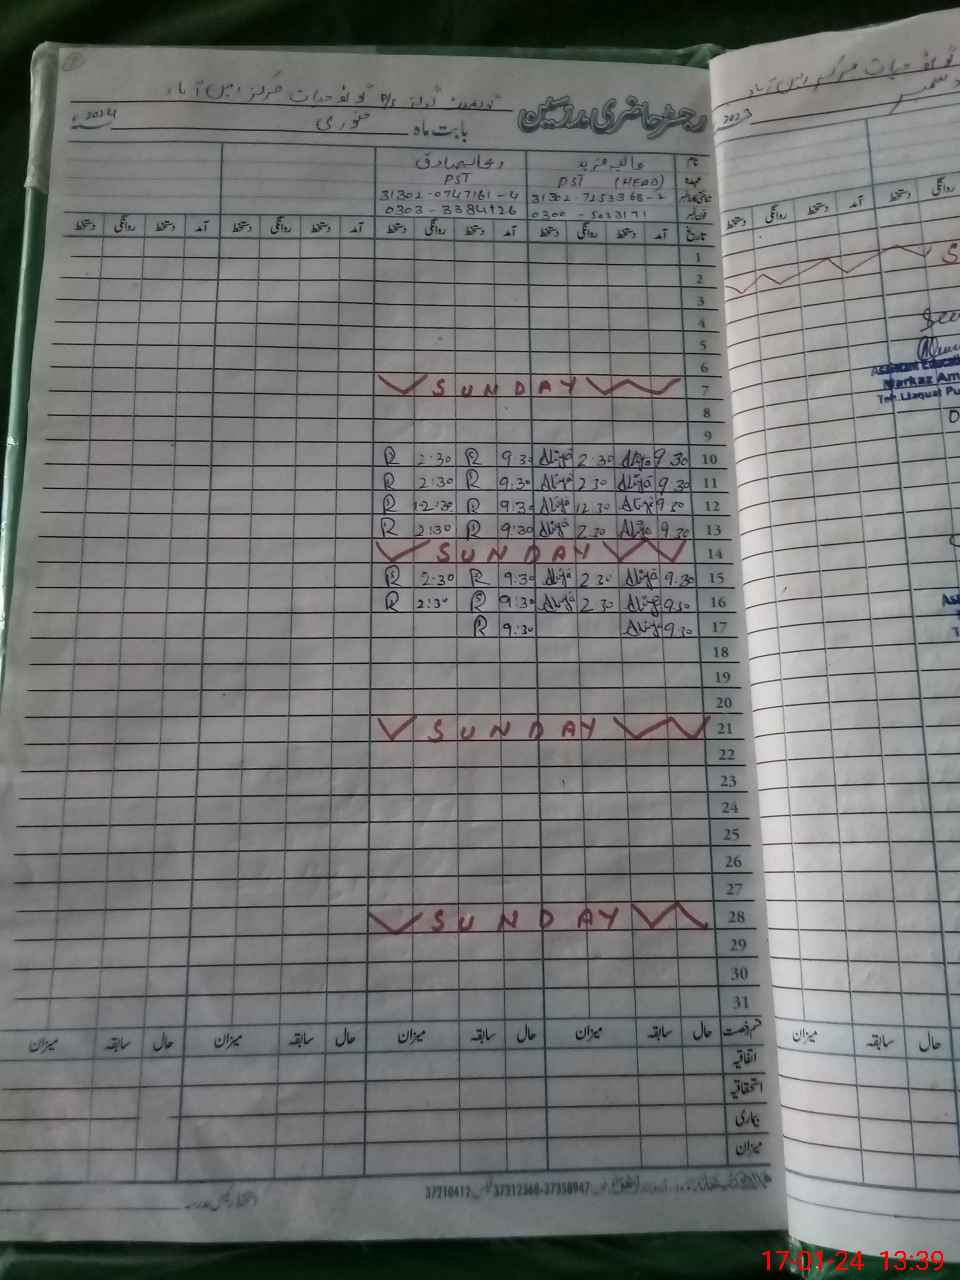 رجسٹر حاضری مدرسین
بابت ماہ جنوری 2024ء
نام عالیہ مزید
عہدہ PST (HEAD) PST
31302-0747161-4
0303-3384126 فون نمبر 0300-5023171
تاریخ آمد دستخط روانگی دستخط آمد دستخط روانگی دستخط آمد دستخط روانگی دستخط آمد دستخط روانگی دستخط
1
2
3
4
5
6
7 SUNDAY
8
9
10 9.30 Aliya 2.30 Aliya 9.30 R 2.30 R
11 9.30 Aliya 2.30 Aliya 9.30 R 2:30 R
12 9.30 Aliya 12.30 Aliya 9:30 R 12:30 R
13 9.30 Aliya 2.30 Aliya 9:30 R 2:30 R
14 SUNDAY
15 9.30 Aliya 2.30 Aliya 9.30 R 2.30 R
16 9.30 Aliya 2.30 Aliya 9:30 R 2:30 R
17 9.30 Aliya 9:30 R
18
19
20
21 SUNDAY
22
23
24
25
26
27
28 SUNDAY
29
30
31
قسم رخصت حال سابقہ میزان حال سابقہ میزان حال سابقہ میزان
اتفاقیہ
استحقاقیہ
بیماری
میزان
37312360-37350947 37210412
2023
دسمبر
آمد دستخط روانگی دستخط
Assistant Educati
Markaz Am
Teh. Liaquat Pu
حال سابقہ میزان
17-01-24 13:39